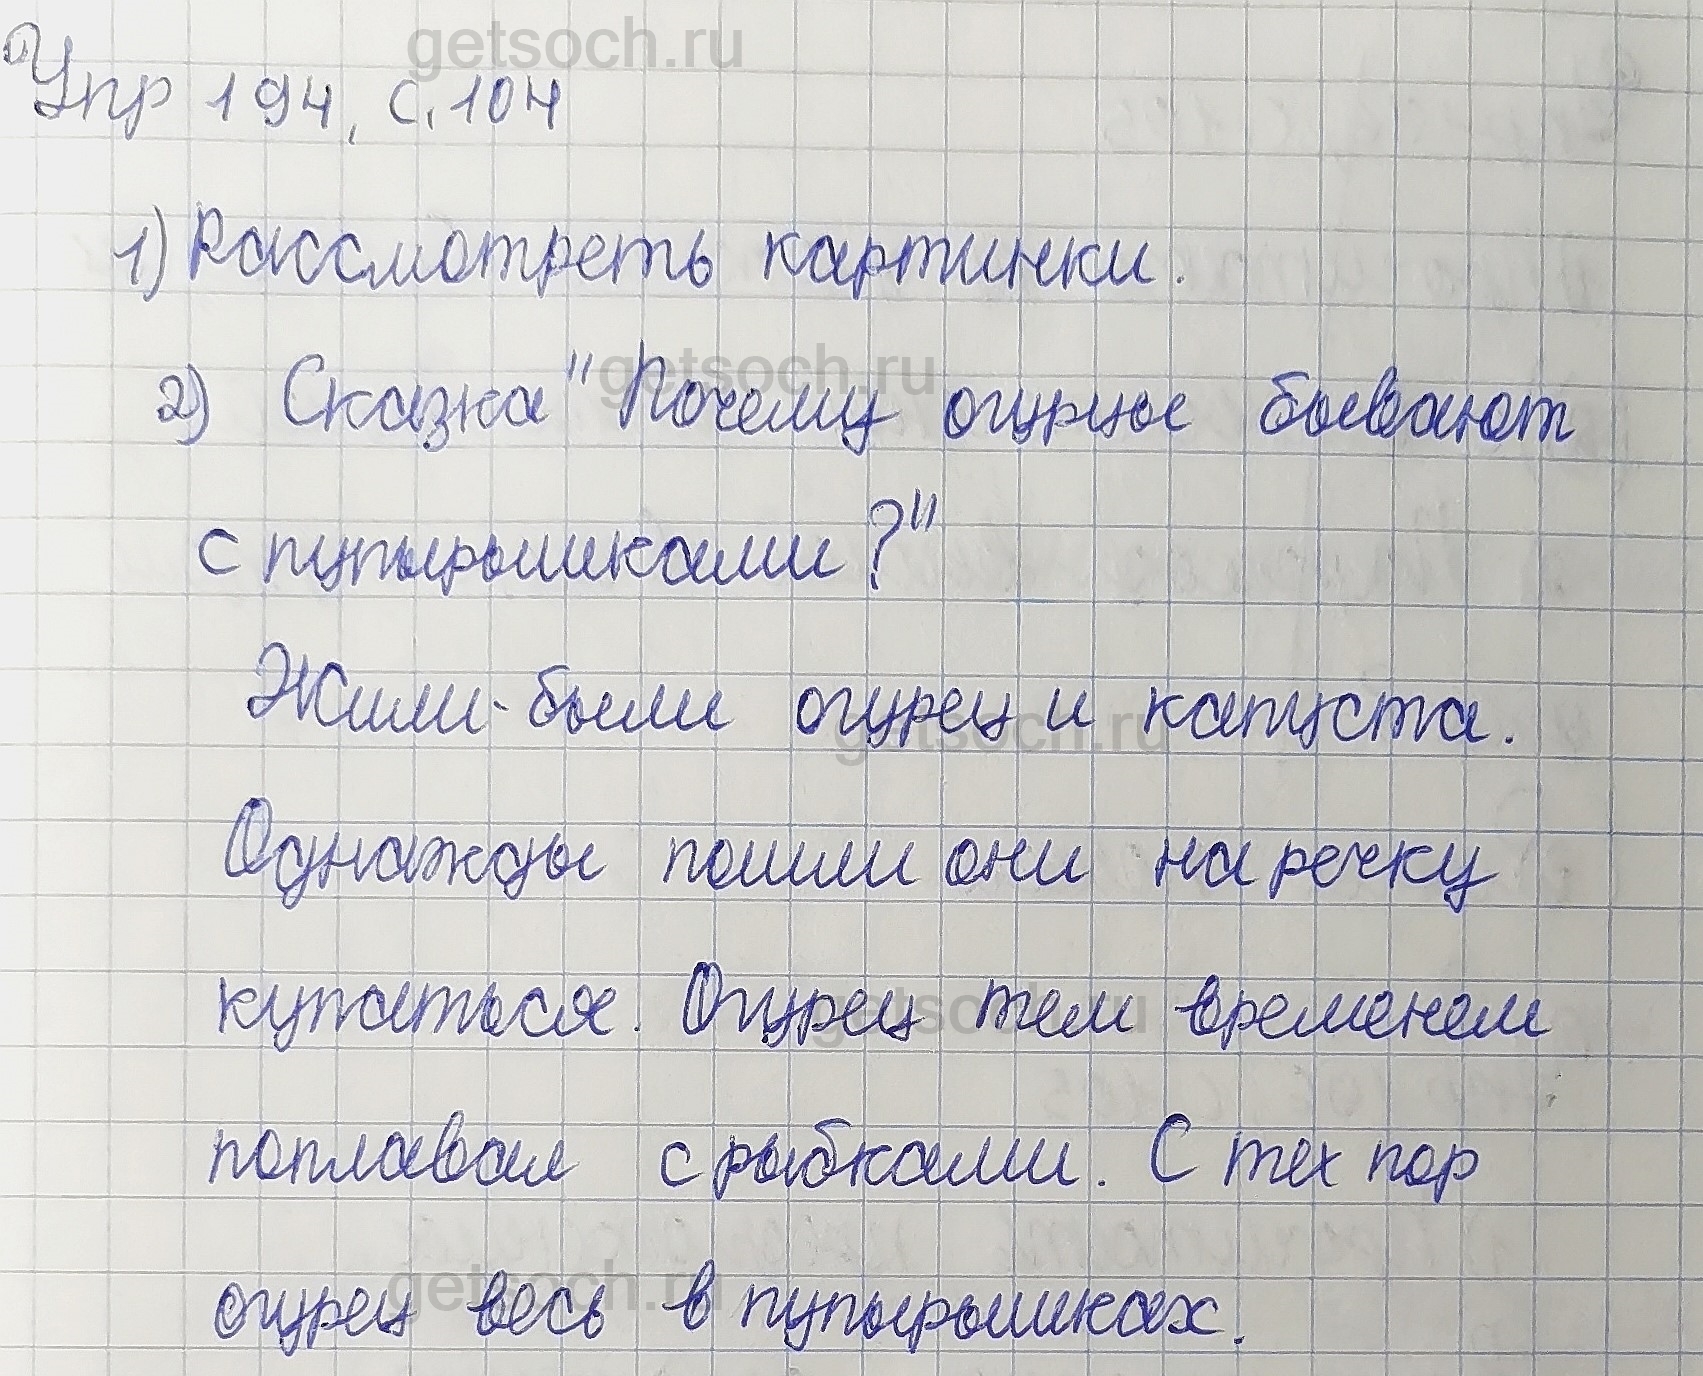 getsoch.ru
Упр 194, с. 104
1) Рассмотреть картинки.
getsoch.ru
2) Сказка "Почему огурцы бывают
с пупырышками?"
Жили-были огурец и капуста.
getsoch.ru
Однажды пошли они на речку
купаться. Огурец тем временем
getsoch.ru
поплавал с рыбками. С тех пор
getsoch.ru
огурец весь в пупырышках.